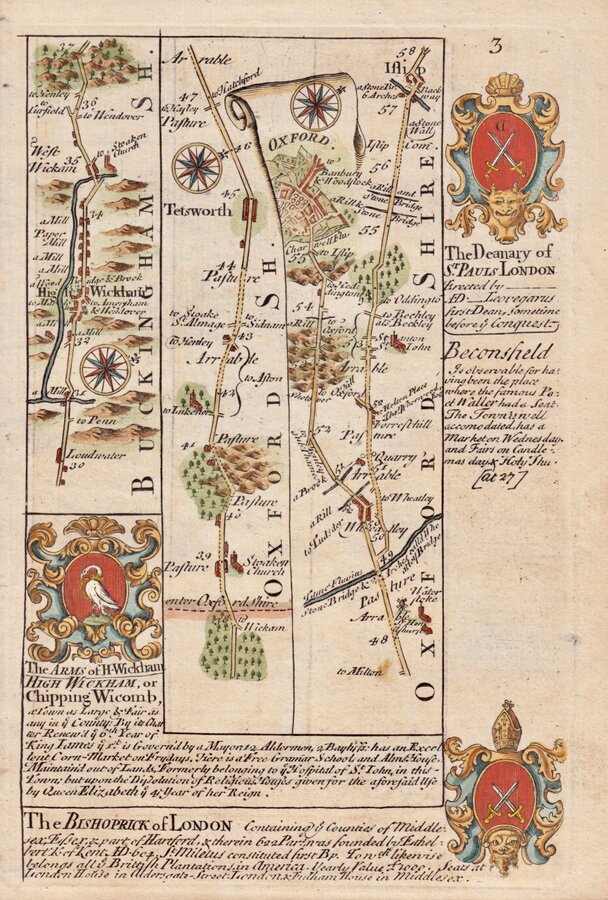 3
37
to Henley
to Fairfield
36
to Wendover
West
Wickam
35
Stoaken
Church
a Mill
34
Paper
Mill
a Mill
a Mill
Bridge & Brook
High Wickham
to Amersham
& Hendover
a Mill
32
a Mill
to Penn
Loudwater
30
BUCKINGHAM SH.
Arrable
47
to Hatchford
to Kyley
Pasture
46
45
Tetsworth
44
Pasture
to Stoake
St. Almage
to Sidnam
43
to Henley
Arrable
42
to Aston
to Lukenor
41
Pasture
Pasture
40
39
Pasture
Stoaken
Church
enter Oxford Shire
to Wickam
OXFORD SH.
OXFORD
to
Banbury
& Woodstock
Charwell Flu.
to Islip
54
a Rill
to
Oxford
to
Oxford
52
a Brook
51
a Rill
58
Islip
a Stone Br.
6 Arches
Back
way
57
a Stone
Wall
Islip
Com.
56
a Rill and
Stone Bridge
a Rill &
Stone Bridge
55
55
to Oddington
to Bechley
als Beckley
Stanton
St. John
53
Arrable
52
Forresthill
Pasture
Quarry
51
Arrable
to Wheatley
Wheatley
50
49
Tame Fluvius
Stone Bridge &
Pasture
Water
Stoke
Arrable
48
to Milton
OXFORDSHIRE
The Deanary of
St. Pauls LONDON
Erected by
AD Leovegarus
first Dean, sometime
before ye Conquest.
Beconsfield
Is observable for ha-
ving been the place
where the famous Po-
et Waller had a Seat.
The Town is well
accomodated, has a
Market on Wednesday
and Fairs on Candle-
mas day & Holy Thu.
[at 27]
The Arms of H. Wickham
HIGH WICKHAM, or
Chipping Wicomb,
a Town as Large & Fair as
any in ye County. By its Char
ter Renew'd ye 6th Year of
King James ye 1st is Govern'd by a Mayor 12 Aldermen, 2 Bayliffs: has an Excel
lent Corn-Market on Frydays. Here is a Free Gramar School and Alms House.
Maintain'd out of Lands, Formerly belonging to ye Hospitll of St. John, in this
Town; but upon the Dissolution of Religious Houses given for the aforesaid Use
by Queen Elizabeth ye 4th Year of her Reign.
The BISHOPRICK of LONDON Containing ye Counties of Middle
sex, Essex, & part of Hartford, & therein 622 Par. was founded by Ethel-
bert K. of Kent. AD 604. St. Militus constituted first Bp. To wch. likewise
belongs all ye British Plantations in America. Yearly Value £1000. Seats at
London House in Aldersgate Street London, & Fulham House in Middlesex.